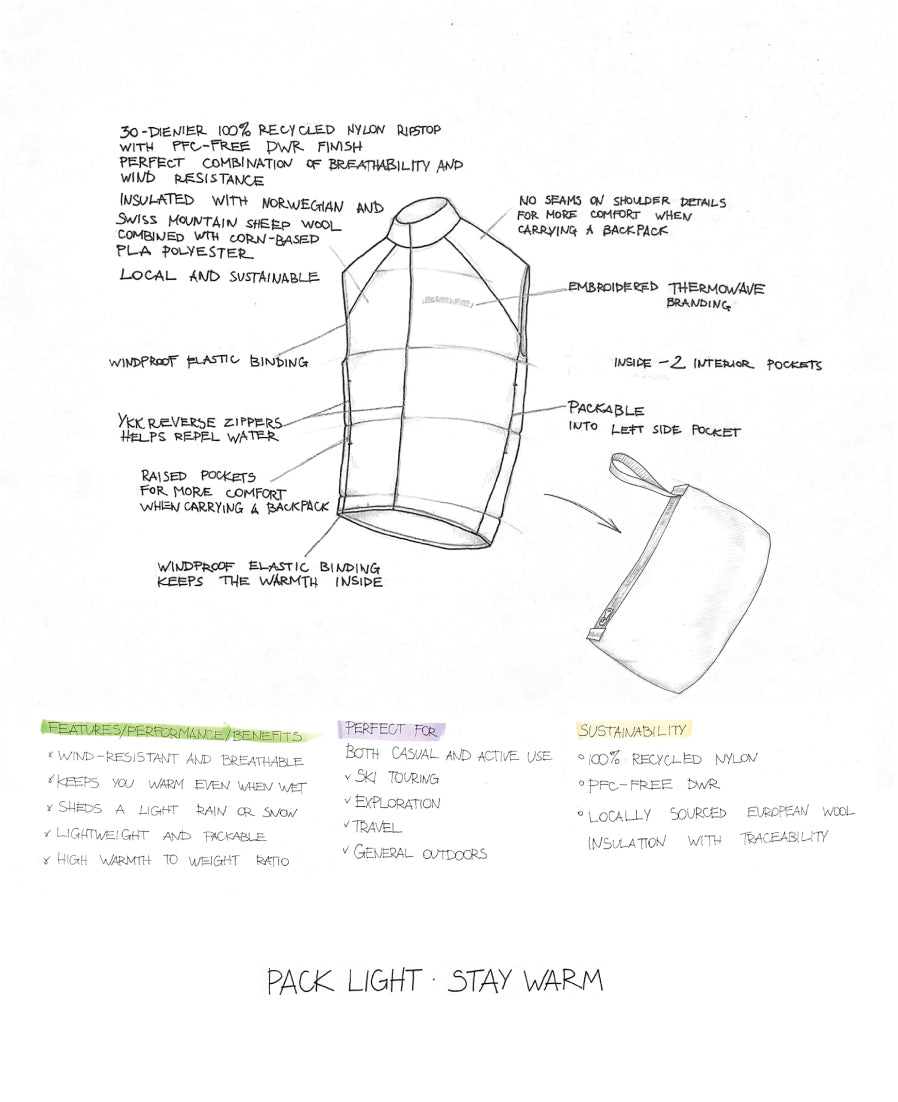 30-DIENIER 100% RECYCLED NYLON RIPSTOP
WITH PFC-FREE DWR FINISH
PERFECT COMBINATION OF BREATHABILITY AND
WIND RESISTANCE
INSULATED WITH NORWEGIAN AND
SWISS MOUNTAIN SHEEP WOOL
COMBINED WTH CORN-BASED
PLA POLYESTER
LOCAL AND SUSTAINABLE
WINDPROOF ELASTIC BINDING
YKK REVERSE ZIPPERS
HELPS REPEL WATER
RAISED POCKETS
FOR MORE COMFORT
WHEN CARRYING A BACKPACK
WINDPROOF ELASTIC BINDING
KEEPS THE WARMTH INSIDE
NO SEAMS ON SHOULDER DETAILS
FOR MORE COMFORT WHEN
CARRYING A BACKPACK
EMBROIDERED THERMOWAVE
BRANDING
INSIDE - 2 INTERIOR POCKETS
PACKABLE
INTO LEFT SIDE POCKET
FEATURES/PERFORMANCE/BENEFITS
WIND-RESISTANT AND BREATHABLE
KEEPS YOU WARM EVEN WHEN WET
SHEDS A LIGHT RAIN OR SNOW
LIGHTWEIGHT AND PACKABLE
HIGH WARMTH TO WEIGHT RATIO
PERFECT FOR
BOTH CASUAL AND ACTIVE USE
SKI TOURING
EXPLORATION
TRAVEL
GENERAL OUTDOORS
SUSTAINABILITY
100% RECYCLED NYLON
PFC-FREE DWR
LOCALLY SOURCED EUROPEAN WOOL
INSULATION WITH TRACEABILITY
PACK LIGHT · STAY WARM